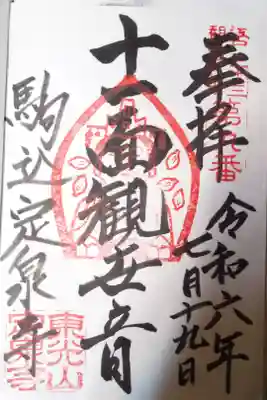 奉拝
第九番
令和六年
七月十九日
十一面觀世音
駒込定泉寺
東光山
定泉寺